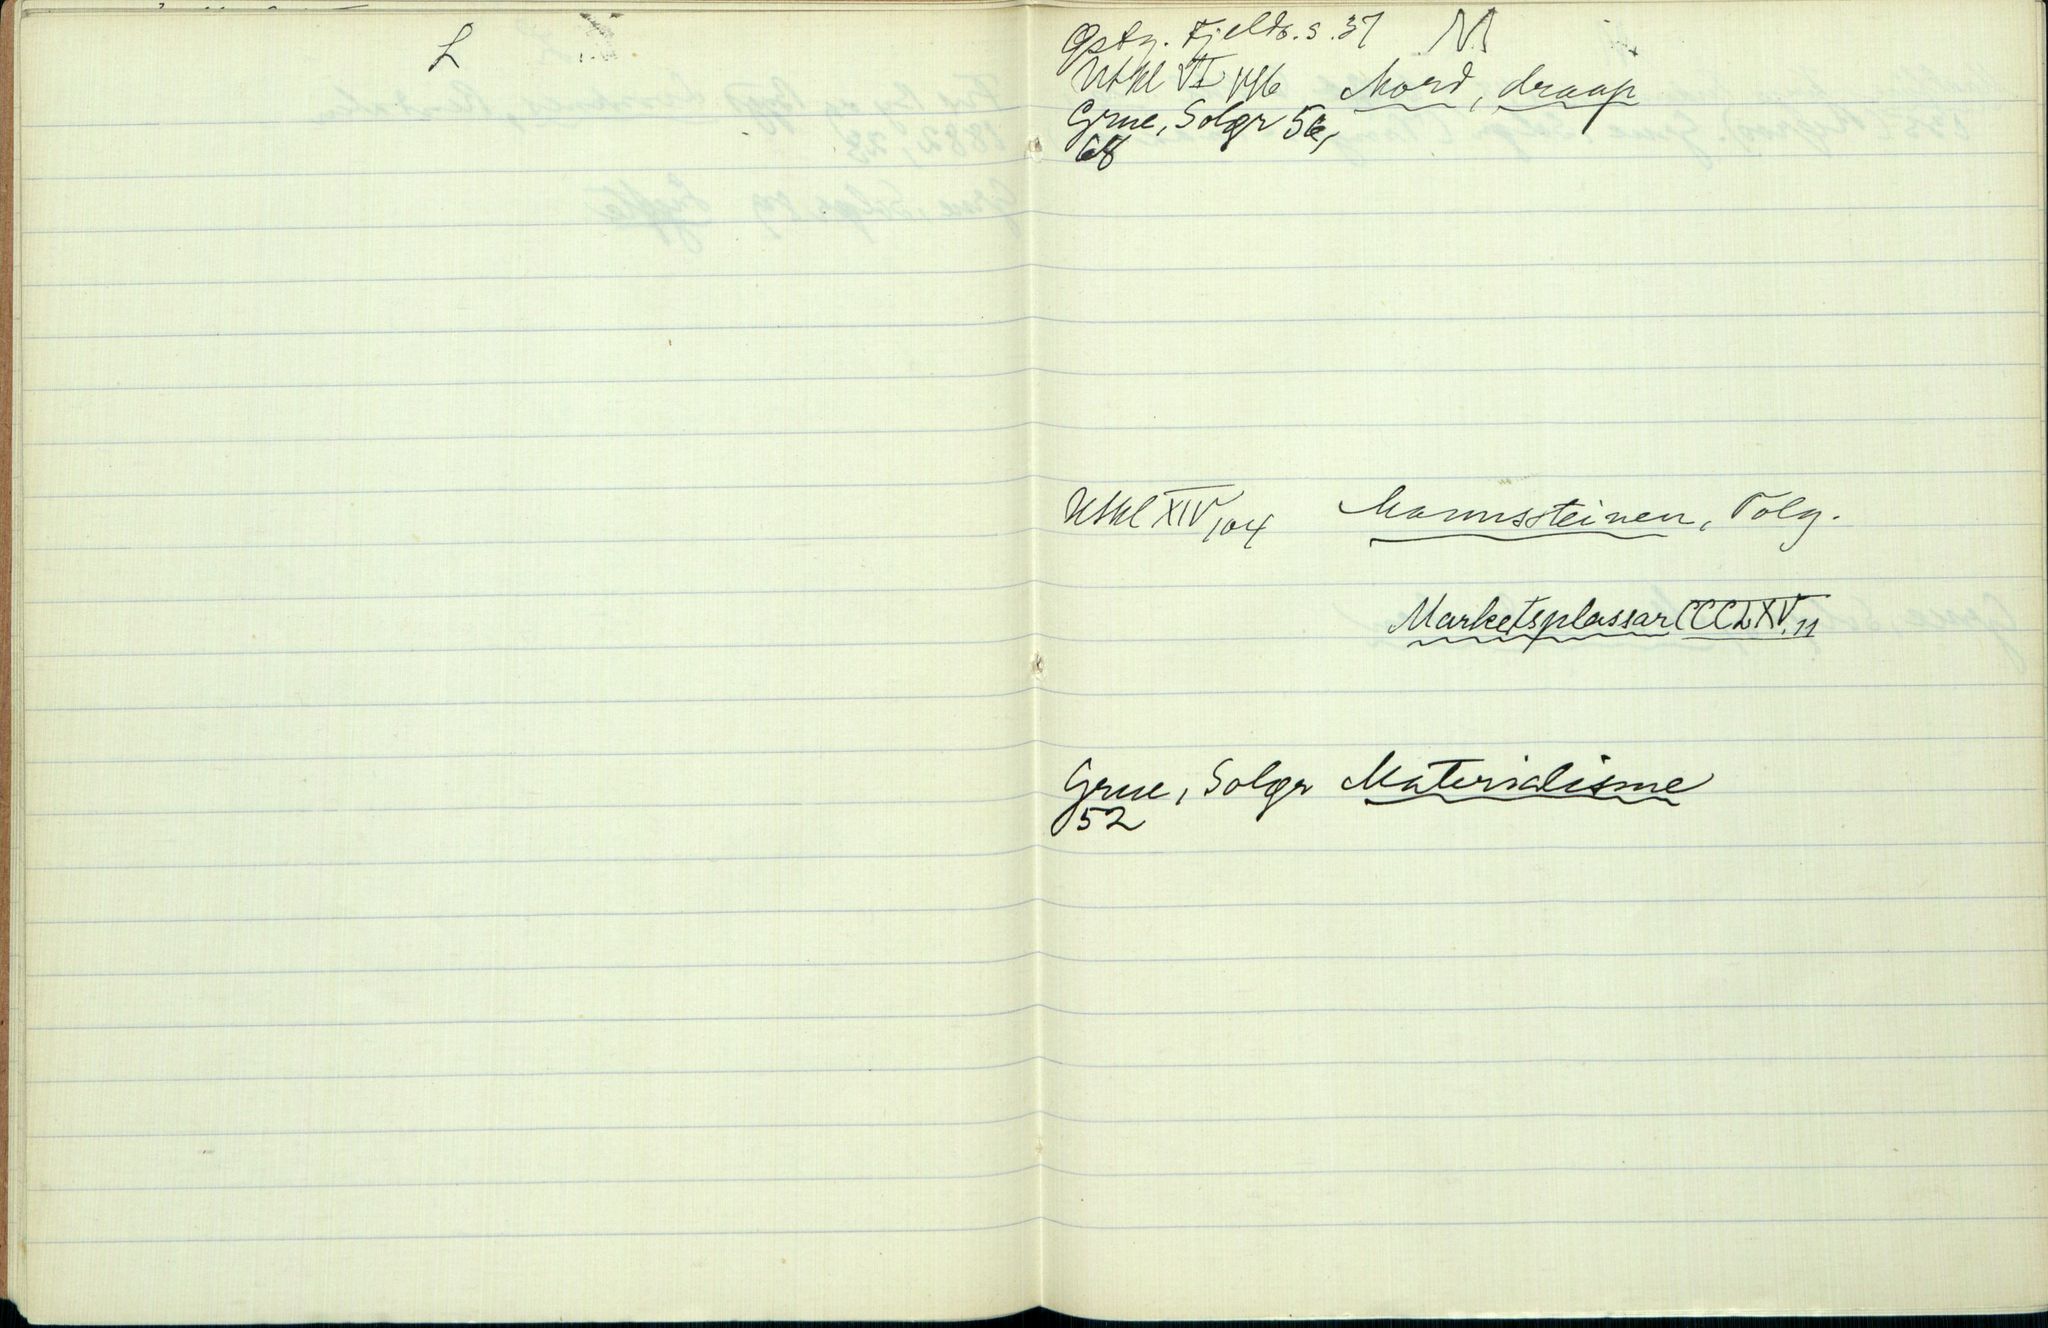 L
M
Østg. Fjeldb. s. 37
Utkl VI 146 Mord, draap
Grue, Solør 56,
68
Utkl XIV, 104 Mannssteinen, Tolg.
Marketsplassar CCCLXV, 11
Grue, Solør Materialisme
52